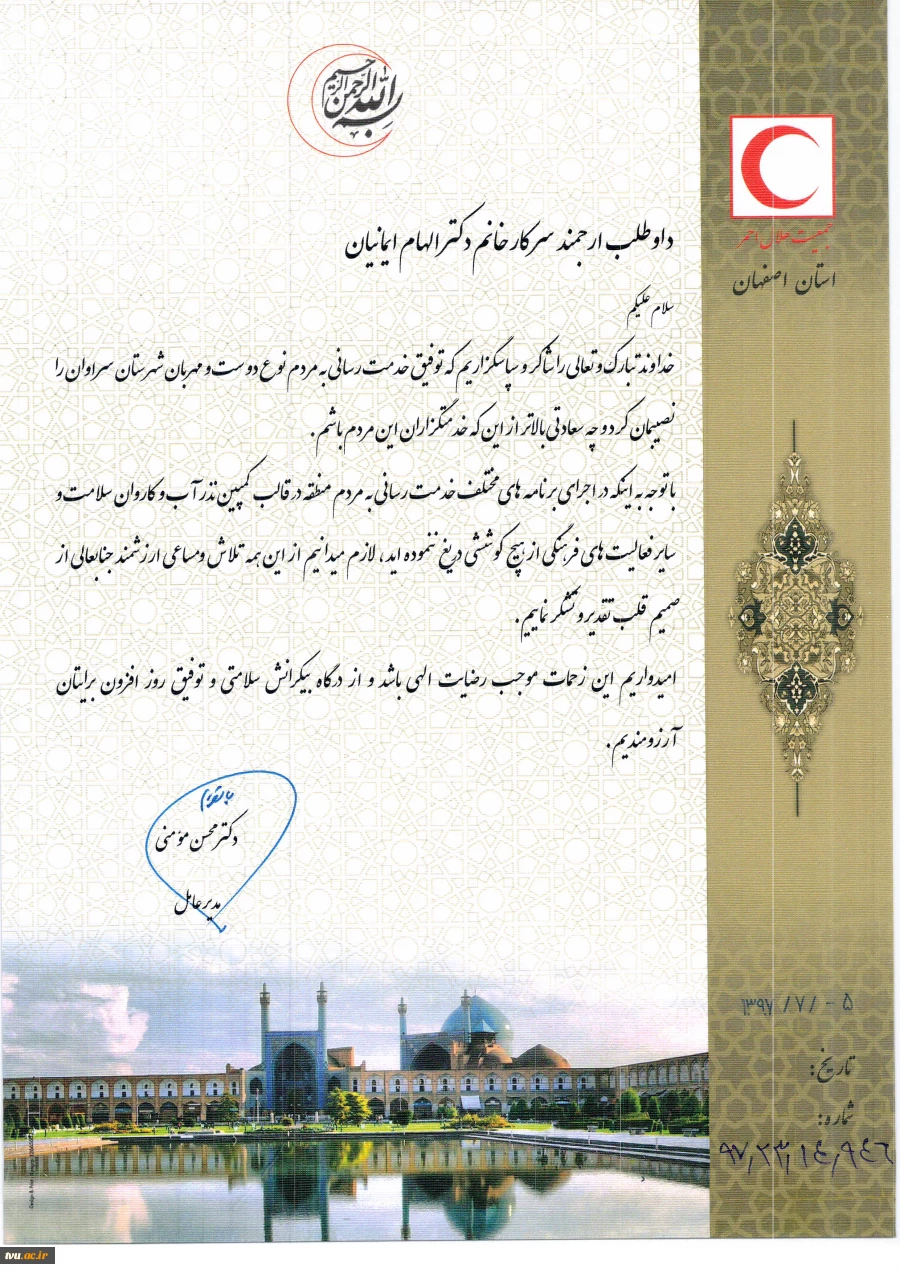 بسم الله الرحمن الرحیم
جمعیت هلال احمر
استان اصفهان
داوطلب ارجمند سرکار خانم دکتر الهام ایمانیان
سلام علیکم
خداوند تبارک و تعالی را شاکر و سپاسگزاریم که توفیق خدمت رسانی به مردم نوع دوست و مهربان شهرستان سراوان را
نصیبمان کرد و چه سعادتی بالاتر از این که خدمتگزاران این مردم باشم.
با توجه به اینکه در اجرای برنامه های مختلف خدمت رسانی به مردم منطقه در قالب کمپین نذر آب و کاروان سلامت و
سایر فعالیت های فرهنگی از هیچ کوششی دریغ ننموده اید، لازم میدانیم از این همه تلاش و مساعی ارزشمند جنابعالی از
صمیم قلب تقدیر و تشکر نماییم.
امیدواریم این زحمات موجب رضایت الهی باشد و از درگاه بیکرانش سلامتی و توفیق روز افزون برایتان
آرزومندیم.
دکتر محسن مؤمنی
مدیر عامل
۱۳۹۷/۷/-۵
تاریخ:
شماره:
۹۷,۲۳,۱٤,۹٤٦
tvu.ac.ir